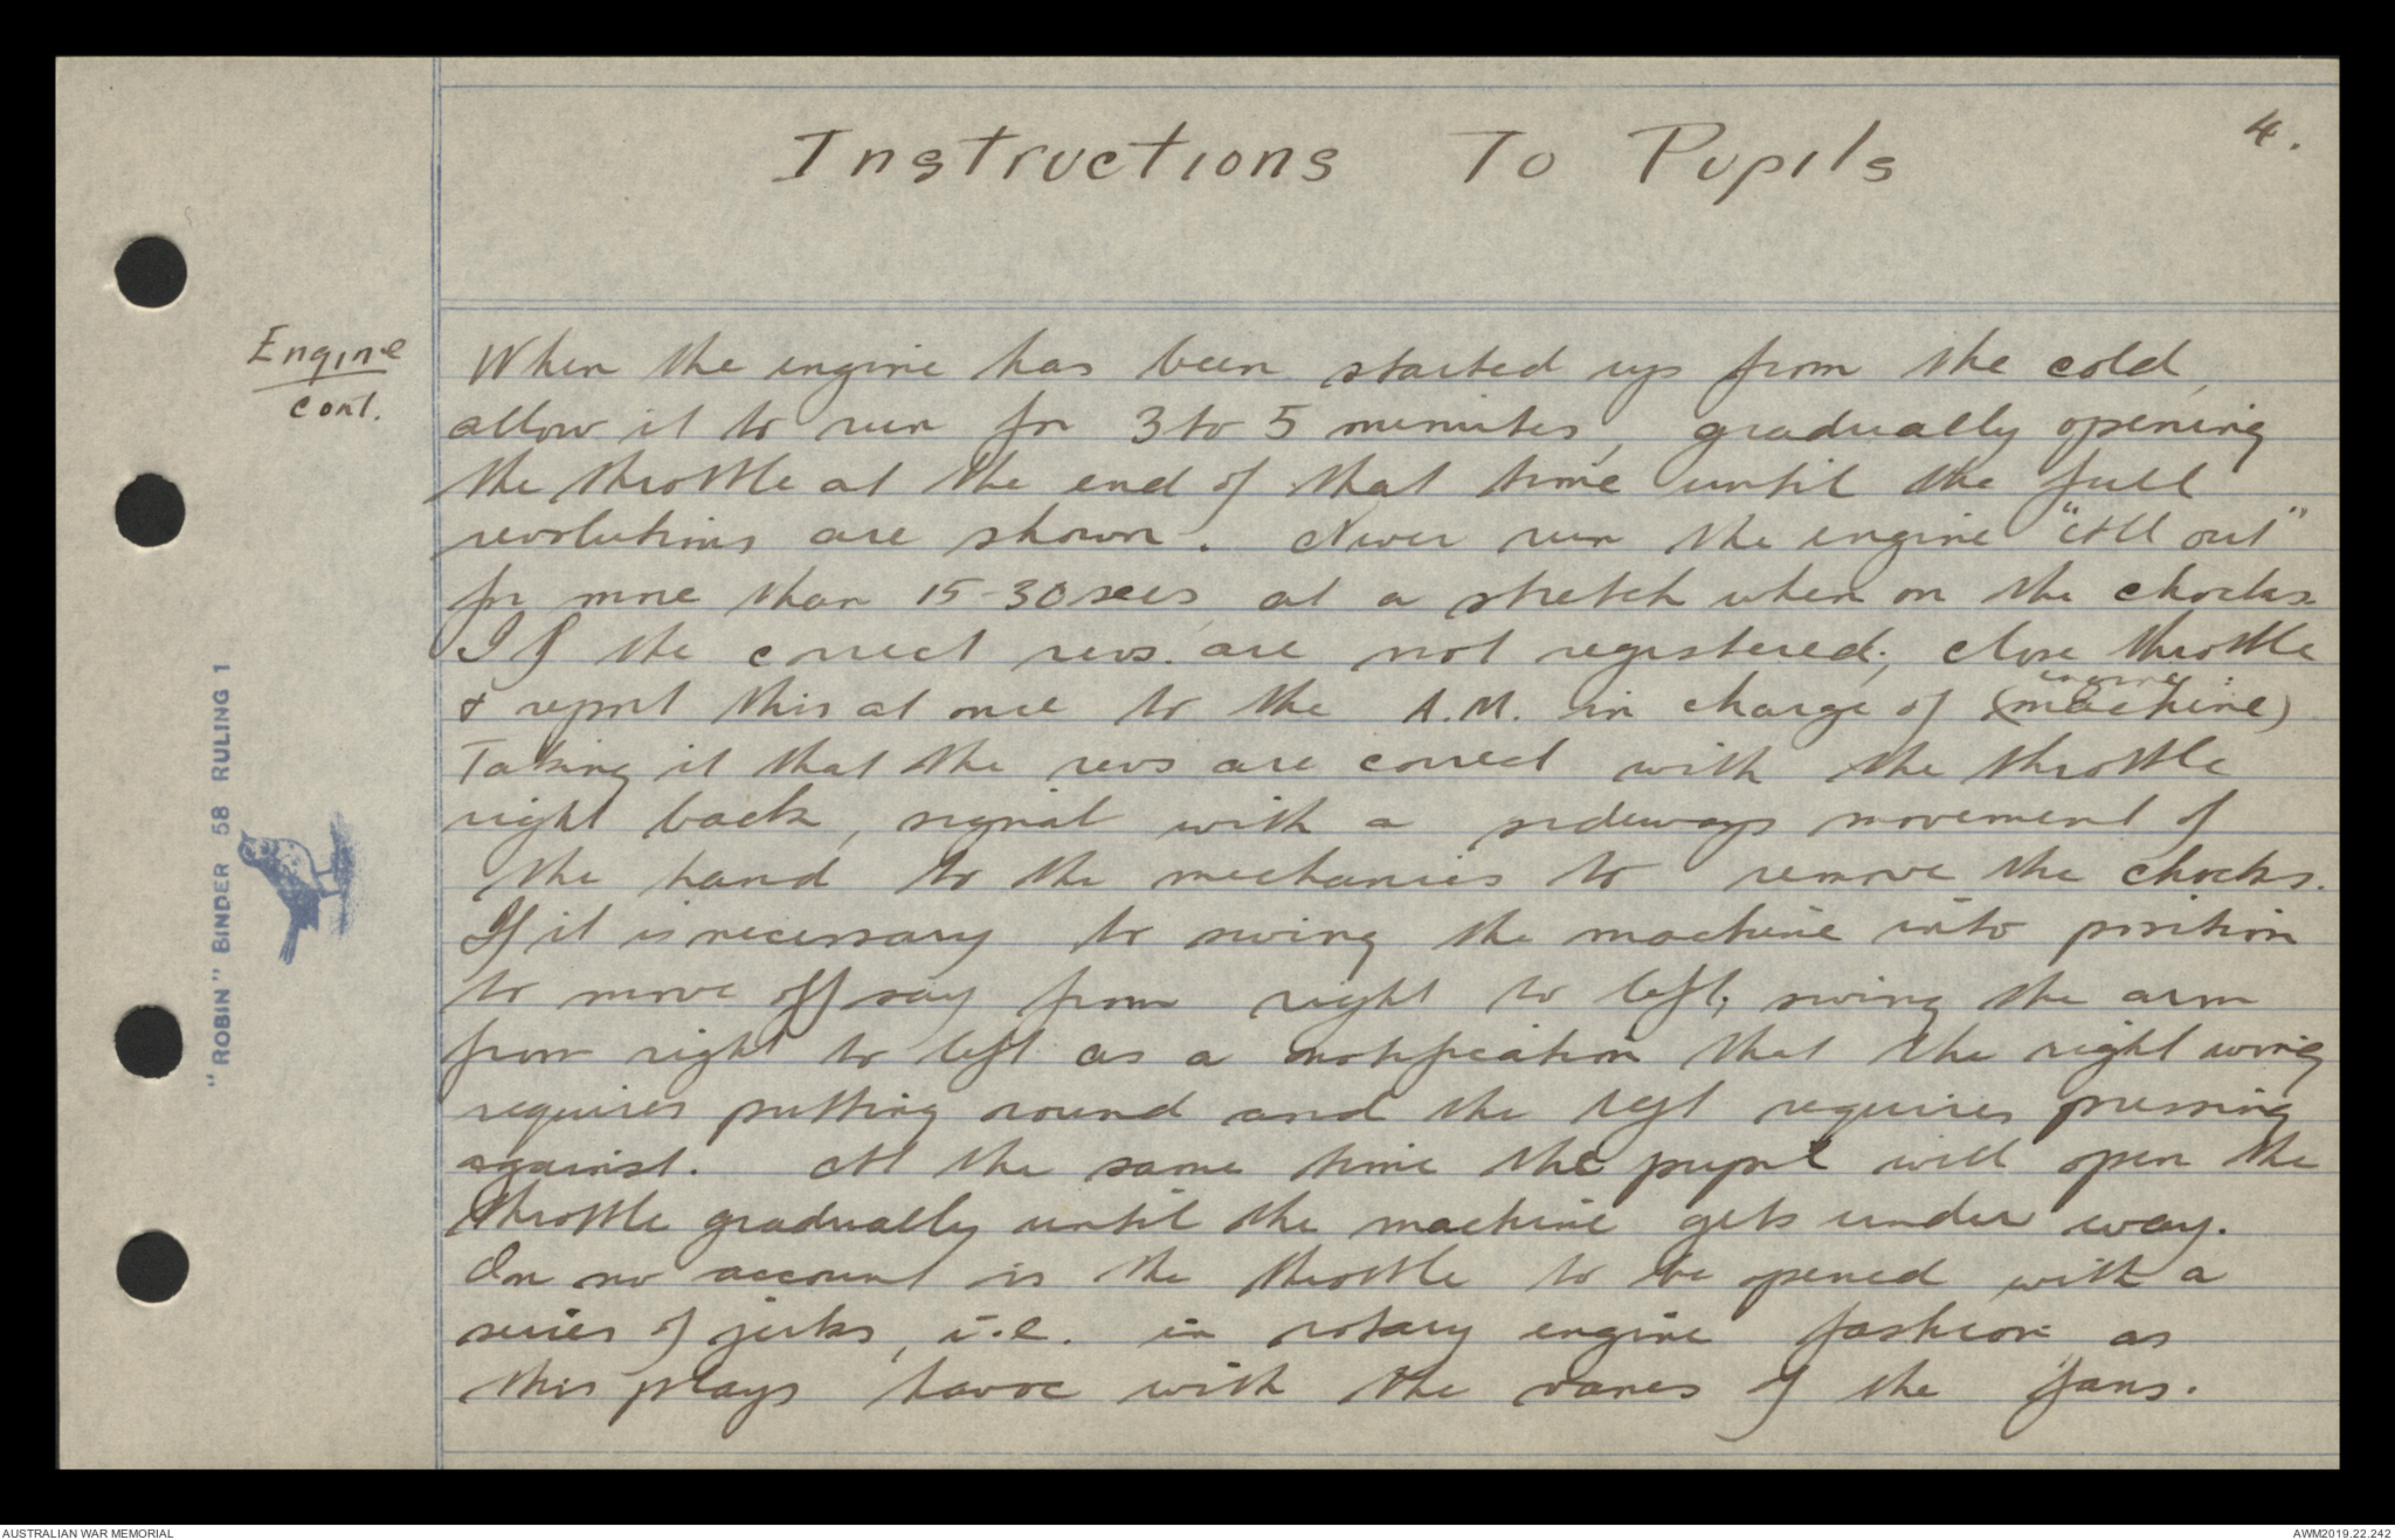 Instructions To Pupils
4.
Engine
cont.
When the engine has been started up from the cold,
allow it to run for 3 to 5 minutes, gradually opening
the throttle at the end of that time until the full
revolutions are shown. Never run the engine "All out"
for more than 15-30 secs, at a stretch when on the chocks.
If the correct revs. are not registered, close throttle
engine
& report this at once to the A.M. in charge of (machine)
Taking it that the revs are correct with the throttle
right back, signal with a sideways movement of
the hand to the mechanics to remove the chocks.
If it is necessary to swing the machine into position
to move off say from right to left, swing the arm
from right to left as a notification that the right wing
requires putting round and the left requires pressing
against. At the same time the pupil will open the
throttle gradually until the machine gets under way.
On no account is the throttle to be opened with a
series of jerks, i.e. in rotary engine fashion, as
this plays havoc with the vanes of the fans.
"ROBIN" BINDER 58 RULING 1
AUSTRALIAN WAR MEMORIAL
AWM2019.22.242